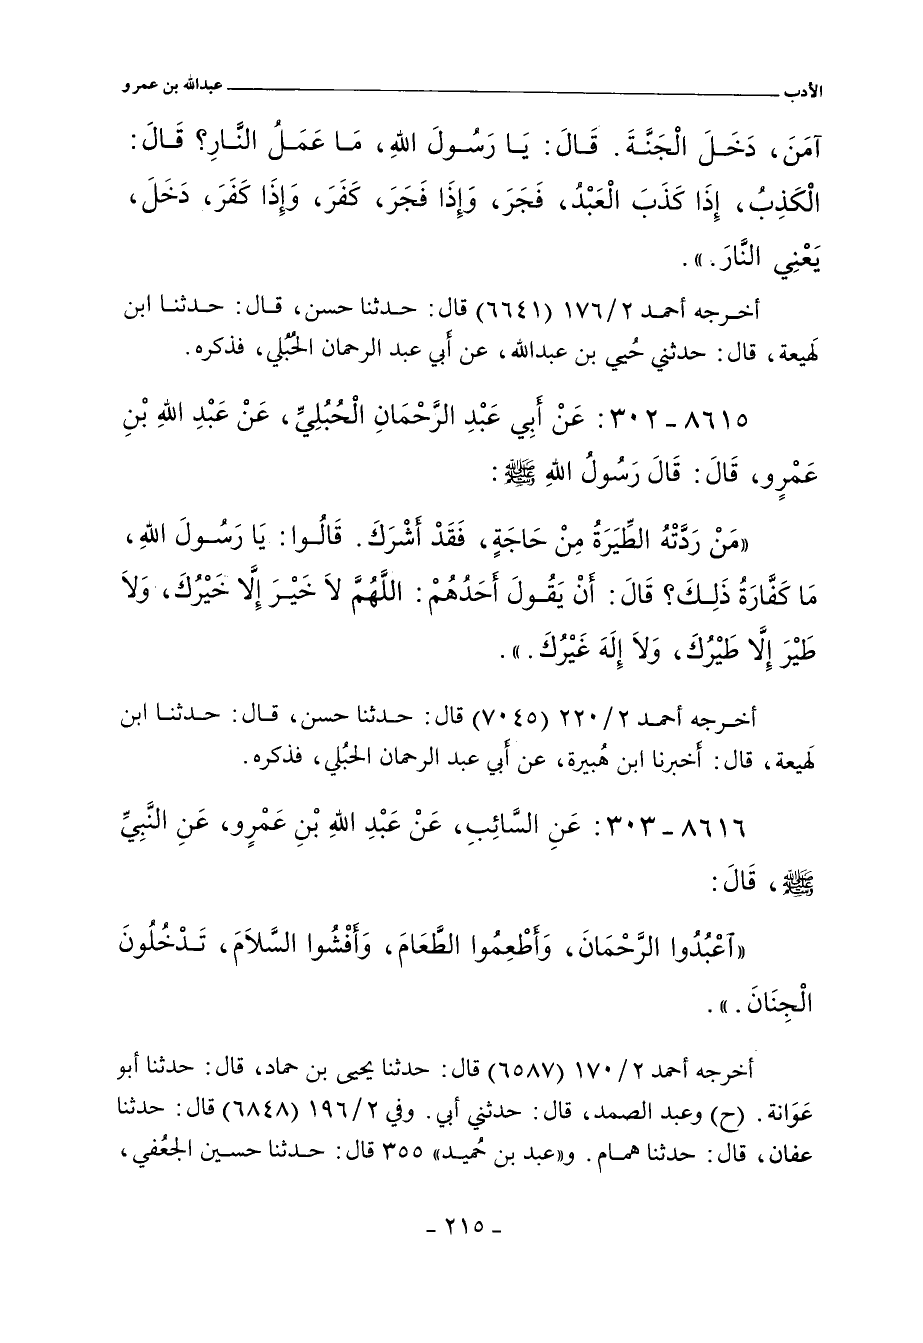 الأدب ــــــــــــ عبدالله بن عمرو
آمَنَ، دَخَلَ الْجَنَّةَ. قَالَ: يَا رَسُولَ اللهِ، مَا عَمَلُ النَّارِ؟ قَالَ:
الْكَذِبُ، إِذَا كَذَبَ الْعَبْدُ، فَجَرَ، وَإِذَا فَجَرَ، كَفَرَ، وَإِذَا كَفَرَ، دَخَلَ،
يَعْنِي النَّارَ.».
أخرجه أحمد ٢/١٧٦ (٦٦٤١) قال: حدثنا حسن، قال: حدثنا ابن
لَهيعة، قال: حدثني حُيي بن عبدالله، عن أَبي عبد الرحمان الحُبُلي، فذكره.
٨٦١٥ - ٣٠٢: عَنْ أَبِي عَبْدِ الرَّحْمَانِ الْحُبُلِيِّ، عَنْ عَبْدِ اللهِ بْنِ
عَمْرٍو، قَالَ: قَالَ رَسُولُ اللهِ ﷺ:
«مَنْ رَدَّتْهُ الطِّيَرَةُ مِنْ حَاجَةٍ، فَقَدْ أَشْرَكَ. قَالُوا: يَا رَسُولَ اللهِ،
مَا كَفَّارَةُ ذَلِكَ؟ قَالَ: أَنْ يَقُولَ أَحَدُهُمْ: اللَّهُمَّ لاَ خَيْرَ إِلَّا خَيْرُكَ، وَلاَ
طَيْرَ إِلَّا طَيْرُكَ، وَلاَ إِلَهَ غَيْرُكَ.».
أخرجه أحمد ٢/٢٢٠ (٧٠٤٥) قال: حدثنا حسن، قال: حدثنا ابن
لَهيعة، قال: أَخبرنا ابن هُبيرة، عن أَبي عبد الرحمان الحُبُلي، فذكره.
٨٦١٦ - ٣٠٣: عَنِ السَّائِبِ، عَنْ عَبْدِ اللهِ بْنِ عَمْرٍو، عَنِ النَّبِيِّ
ﷺ، قَالَ:
«آعْبُدُوا الرَّحْمَانَ، وَأَطْعِمُوا الطَّعَامَ، وَأَفْشُوا السَّلاَمَ، تَدْخُلُونَ
الْجِنَانَ.».
أخرجه أحمد ٢/١٧٠ (٦٥٨٧) قال: حدثنا يحيى بن حماد، قال: حدثنا أبو
عَوَانة. (ح) وعبد الصمد، قال: حدثني أبي. وفي ٢/١٩٦ (٦٨٤٨) قال: حدثنا
عفان، قال: حدثنا همام. و«عبد بن حُميد» ٣٥٥ قال: حدثنا حسين الجعُفي،
- ٢١٥ -